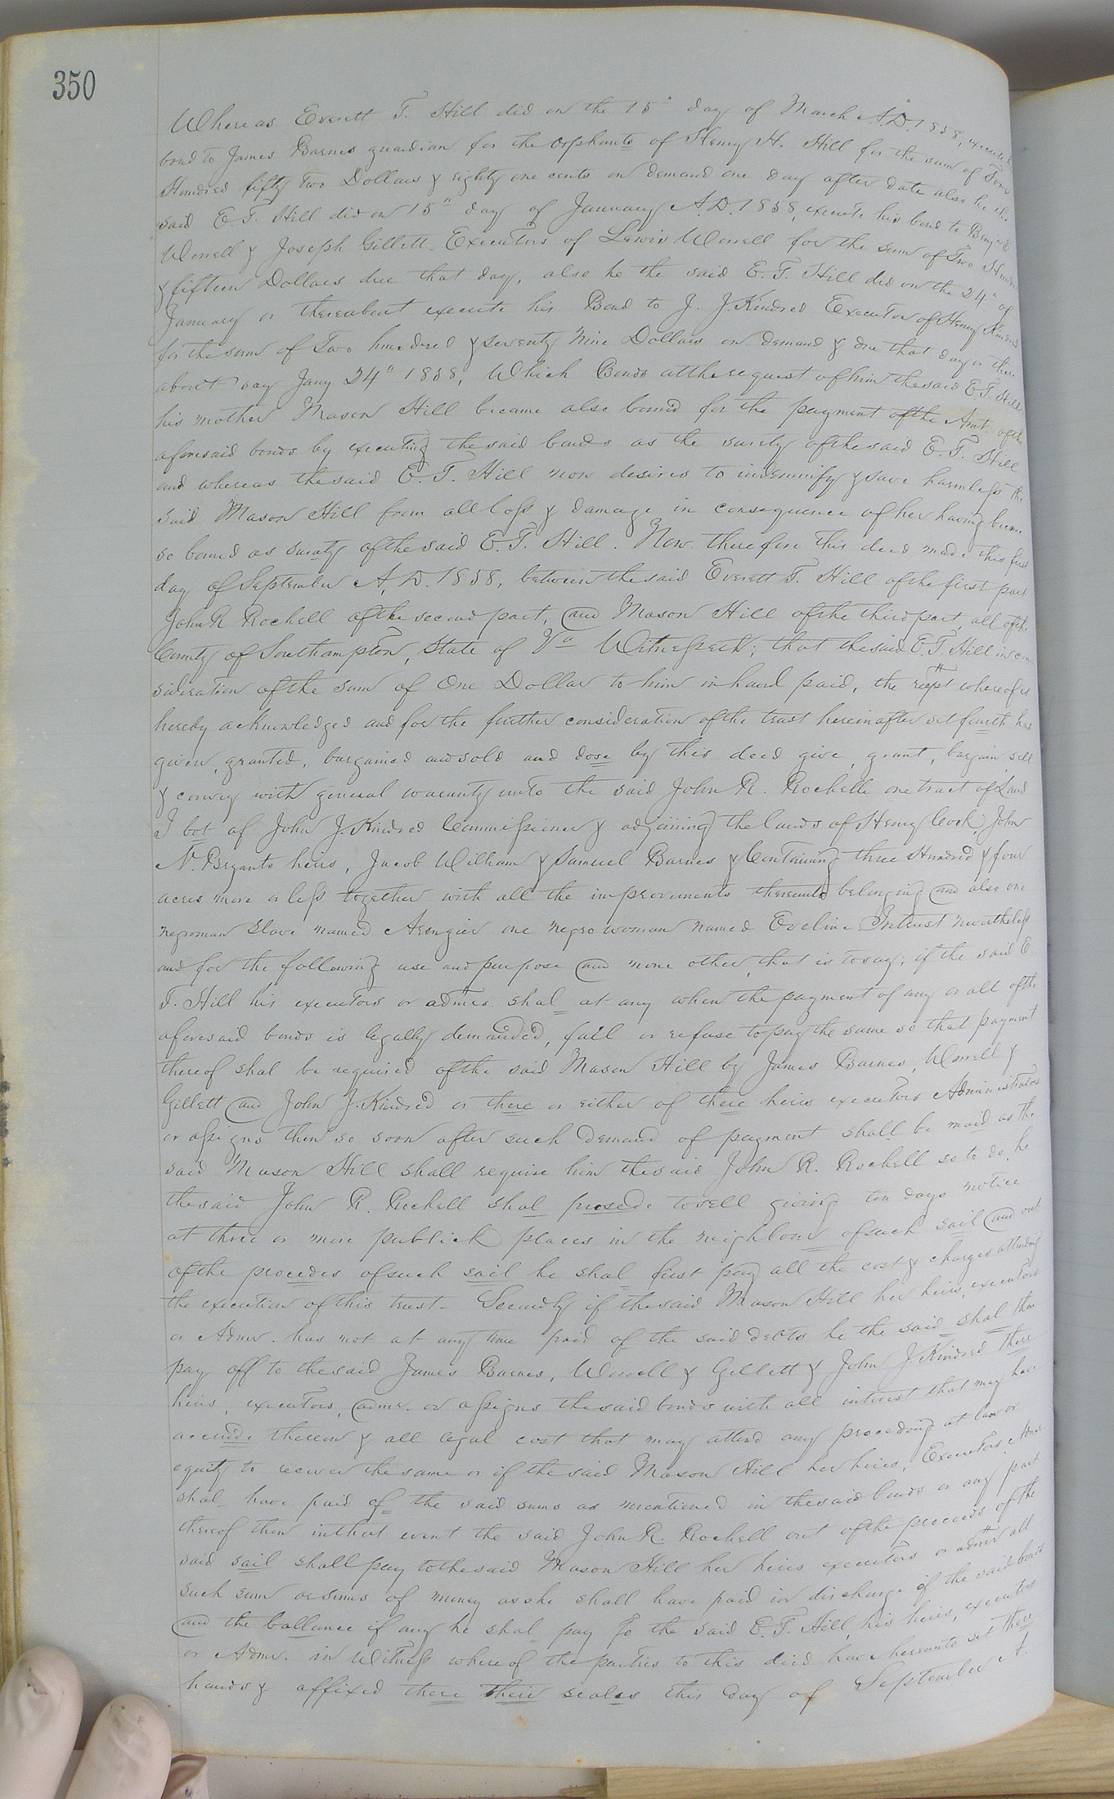 350
Whereas Everett T. Hill did on the 15" day of March A.D. 1858, executed
bond to James Barnes guardian for the orphants of Henry H. Hill for the sum of
Hundred fifty two Dollars & eighty one cents on demand one day after date also he the
said E. T. Hill did on 15" day of January A.D. 1858, execute his bond to Benj. E
Worrell & Joseph Gillett Executors of Lewis Worrell for the sum of Two Hundred
& fifteen Dollars due that day, also he the said E. T. Hill did on the 24" of
January or thereabout execute his Bond to J. J. Kindred Executor of Henry Kindred
for the sum of Two hundred & seventy Nine Dollars on demand & due that day or there
about say Jany 24" 1858, Which Bonds at the request of him the said E. T. Hill
his mother Mason Hill became also bound for the payment of the Amt. of the
aforesaid bonds by executing the said bonds as the surety of the said E. T. Hill
and whereas the said E. T. Hill now desires to indemnify & save harmless the
said Mason Hill from all loss & damage in consequence of her having become
so bound as suraty of the said E. T. Hill. Now therefore this deed made this first
day of September A. D. 1858, between the said Everett T. Hill of the first part
John R Rochell of the second part, and Mason Hill of the third part, all of the
County of Southampton, State of Va Witnesseth; that the said E. T. Hill in con
sideration of the sum of One Dollar to him in hand paid, the recpt whereof is
hereby acknowledged and for the further consideration of the trust hereinafter set fourth has
given, granted, bargained and sold and dose by this deed give, grant, bargain sell
& convey with general waranty unto the said John R. Rochelle one tract of Land
I bot of John J. Kindred Commissioner & adjoining the lands of Henry Cook, John
N. Bryants heirs, Jacob William & Samuel Barnes & Containing three Hundred & four
acres more or less together with all the improvements thereunto belonging and also one
negroman Slave named one negro woman named Eveline Intrust nevertheless
and for the following use and purpose and none other, that is to say; if the said E
T. Hill his executors or admrs. shal at any when the payment of any or all of the
aforesaid bonds is legally demanded, fail or refuse to pay the same so that payment
thereof shal be required of the said Mason Hill by James Barnes, Worrell &
Gillett and John J. Kindred or there or either of there heirs executors Administrators
or assigns then so soon after such Demand of payment shall be maid as the
said Mason Hill shall require him the said John R. Rochell so to do, he
the said John R. Rochell shal prosede to sell giving ten days notice
at three or more publick places in the neighbour of such sail and out
of the procedes of such sail he shal first pay all the cost & charges attending
the execution of this trust. Secondly if the said Mason Hill her heirs, executors
or Admr. has not at any time paid of the said debts he the said shal then
pay off to the said James Barnes, Worrell & Gillett & John J. Kindred there
heirs, executors, admr. or assigns the said bonds with all intrust that may have
accrude thereon & all legal cost that may attend any proceding at law or
equity to recover the same or if the said Mason Hill her heirs, Executors Admr
shal have paid of the said sums as mentioned in the said bonds or any part
thereof then in that event the said John R. Rochell out of the procceds of the
said sail shall pay to the said Mason Hill her heirs executors or admr all
such sum or sums of money as she shall have paid in discharge of the said bonds
and the ballance if any he shal pay to the said E. T. Hill, his heirs, executors
or Admr. in Witness whereof the parties to this deed have hereunto set there
hands & affixed there their seales this day of September A.